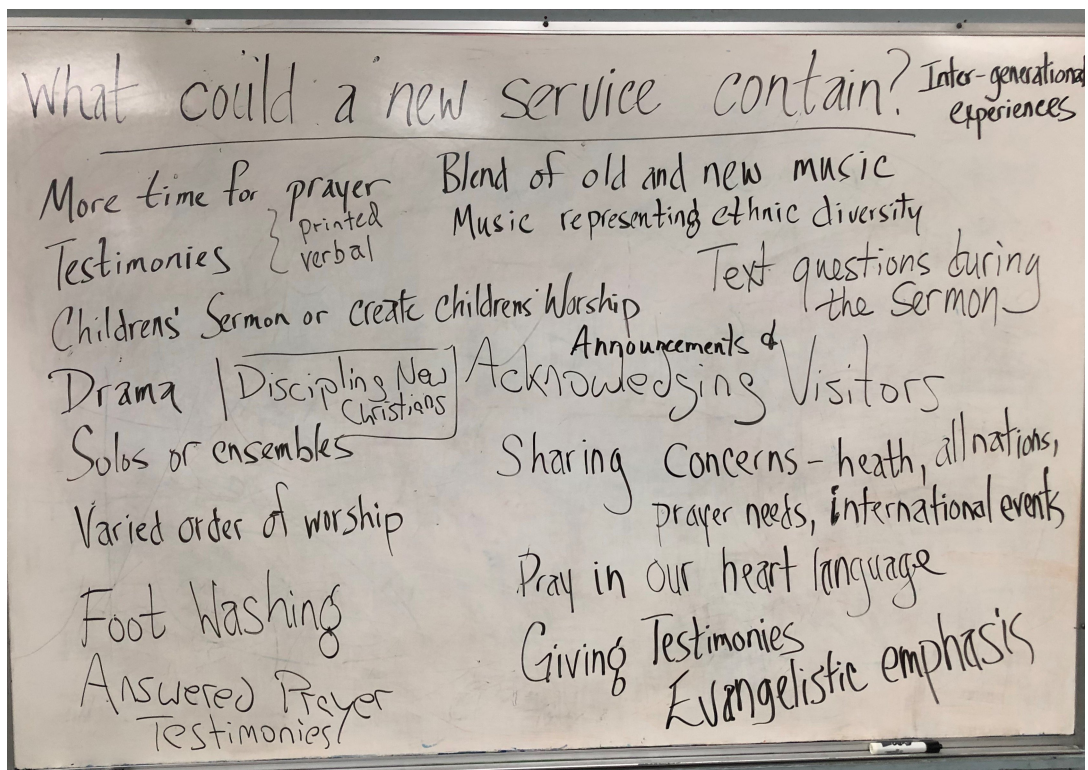 What could a new service contain?
Inter-generational
experiences
More time for prayer
Testimonies
printed
verbal
Childrens' Sermon or create Childrens' Worship
Drama
Discipling New
Christians
Solos or ensembles
Varied order of worship
Foot Washing
Answered Prayer
Testimonies!
Blend of old and new music
Music representing ethnic diversity
Text questions during
the Sermon
Announcements &
Acknowledging Visitors
Sharing Concerns - heath, all nations,
prayer needs, international events
Pray in our heart language
Giving Testimonies
Evangelistic emphasis